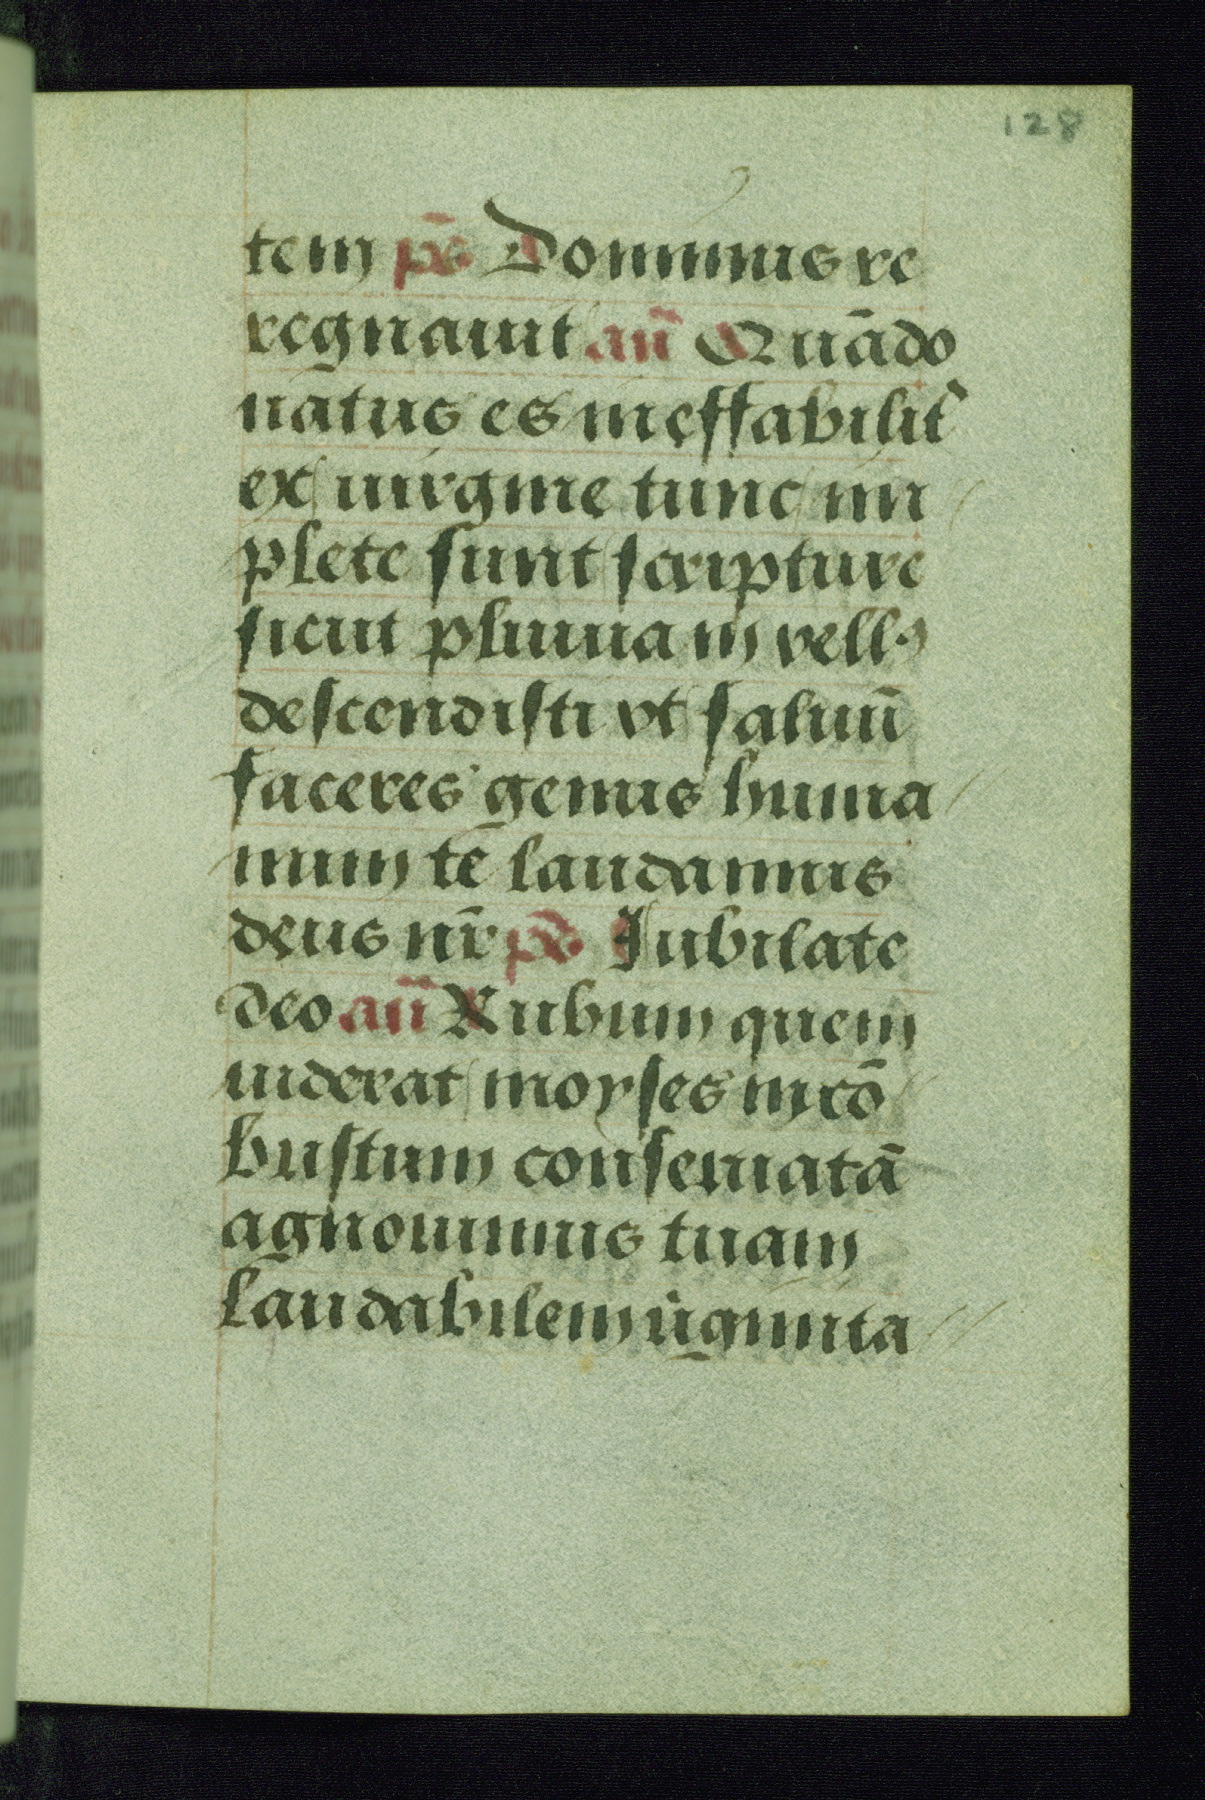 128
tem ps̄ Dominus re
regnauit añ Quādo
natus es ineffabilit᷑
ex uirgine tunc im
plete sunt scripture
sicut pluuia in vellꝰ
descendisti vt saluū
faceres genus huma
num tē laudamus
deus nr̄ ps̄ Iubilate
deo añ Rubum quem
uiderat moyses incō
bustum conseruatā
agnouimus tuam
laudabilem uͥginita